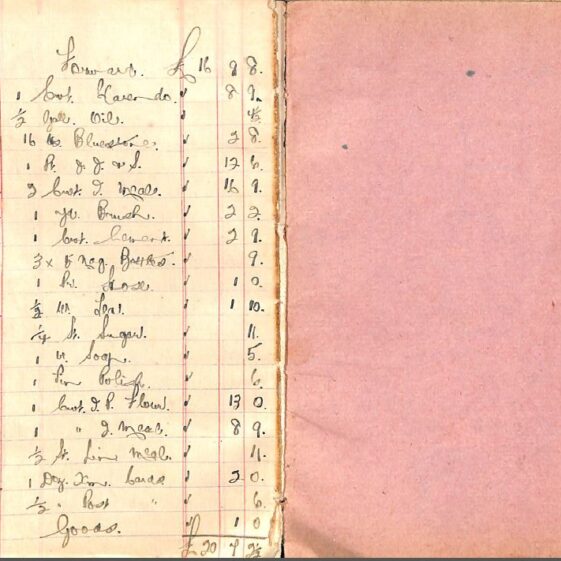 Forward. £ 16 9 8.
1 Cwt. 8 9.
½ Gall. Oil. 4½
16 lbs Bluestone. 2 8.
1 Pr. 12 6.
2 Cwt. I. Meal. 16 9.
1 Yd. Brush. 2 2.
1 Cwt. Cement. 2 9.
3 x 5 9.
1 Pr. 1 0.
½ lb. Tea. 1 10.
¼ St. Sugar. 11.
1 lb. Soap. 5.
1 Tin Polish. 6.
1 Cwt. I. P. Flour. 13 0.
1 " I. Meal. 8 9.
½ St. Lin Meal. 11.
1 Doz. Xm. Cards 2 0.
½ " Post " 6.
Goods. 1 0
£ 20 7 2½